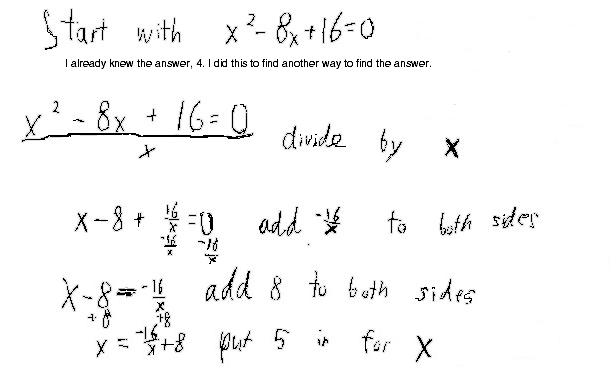 Start with x² - 8x + 16 = 0
I already knew the answer, 4. I did this to find another way to find the answer.
x² - 8x + 16 = 0
x
divide by x
x - 8 + 16/x = 0 add -16/x to both sides
-16/x -16/x
x - 8 = -16/x add 8 to both sides
+8 +8
x = -16/x + 8 put 5 in for x